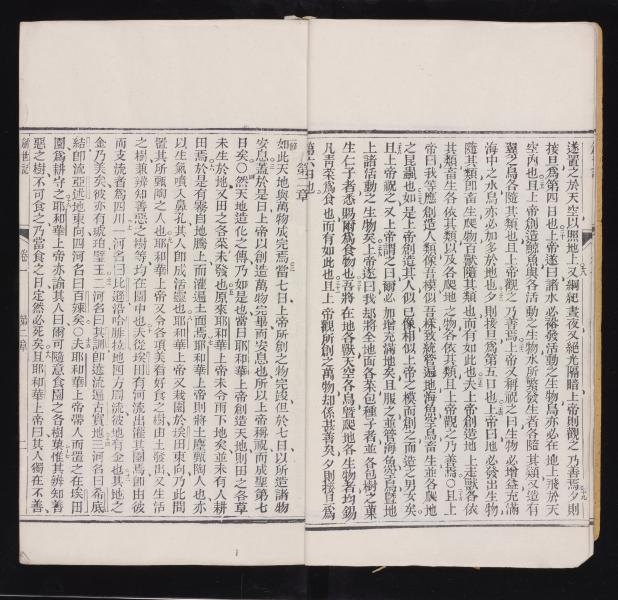 遂置之於天空以照地上又綱紀晝夜又絕光隔暗上帝則觀之乃善焉夕則
接旦爲第四日也上帝遂曰諸水必蕃發活動之生物鳥亦必在地上飛於天
空內也且上帝創造鱷魚與各活動之生物水所繁發生者各隨其類又造有
翼之鳥各隨其類也且上帝觀之乃善焉上帝又稱祝之曰生物必增益充滿
海中之水鳥亦必加多於地也夕則接旦爲第五日也上帝曰地必發出生物
隨其類卽畜生爬物百獸隨其類也而有如此也夫上帝創造地上走獸各依
其類畜生各依其類以及各爬地之物各依其類且上帝觀之乃善焉〇且上
帝曰我等應創造人類像吾模似吾樣致統管遍地海魚空鳥畜生並各爬地
之昆蟲也如是上帝創造其人似已像相似上帝之模而創之而造之男女矣
且上帝祝之又上帝謂之曰爾必加增充滿地矣且服之並管海魚空鳥暨地
上諸活動之生物矣上帝遂曰我卻將全地面各菜包種子者並各包樹之菓
生仁子者悉賜爾爲食物也吾將在地各獸天空各鳥暨爬地各生物者均錫
凡青菜爲食也而有如此也且上帝觀所創之萬物却係甚善矣夕則接旦爲
第六日也
第二章
如此天地與萬物成完焉當七日上帝所創之物完竣但於七日以所造諸物
安息蓋於是日上帝以創造萬物完畢而安息也所以上帝稱祝而成聖第七
日矣〇然天地造化之傳乃如是也當日耶和華上帝創造天地則田之各草
未生於地又田之各菜未發也原來耶和華上帝未令雨下地矣並未有人耕
田焉於是有霧自地騰上而灌遍土面焉耶和華上帝則將土塵甄陶人也亦
以生氣噴入鼻孔其人卽成活靈也耶和華上帝又栽園於埃田東向乃此間
置其所甄陶之人也耶和華上帝又令各項美看好食之樹由土發出又生活
之樹兼辨知善惡之樹等均在園中也夫從埃田有河流出灌其園焉卽由彼
而支流者爲四川一河名曰比遜沿哈腓拉地四方周流彼地有金也其地之
金乃美矣彼亦有琥珀璧玉二河名曰其訓卽遶流遍古實地三河名曰希底
結卽流亞述地東向四河名曰百辣矣〇夫耶和華上帝帶人而置之在埃田
園爲耕守之耶和華上帝亦諭其人曰爾可隨意食園之各樹菓惟其辨知善
惡之樹不可食之乃當食之日定然必死矣且耶和華上帝曰其人獨在不善
創世記 卷一 第二章 二